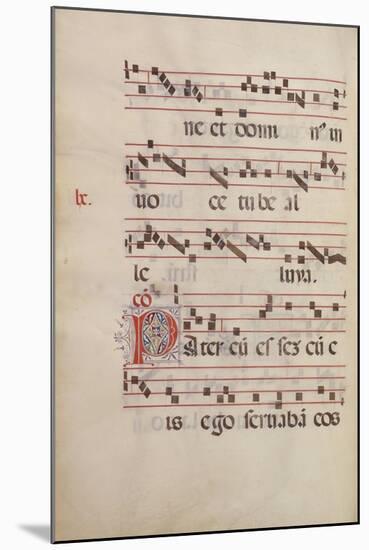 ne et domi nꝰ in
lx. no ce tu be al
le luya.
cō
Pater cū es sez cū e
is ego seruabā eos